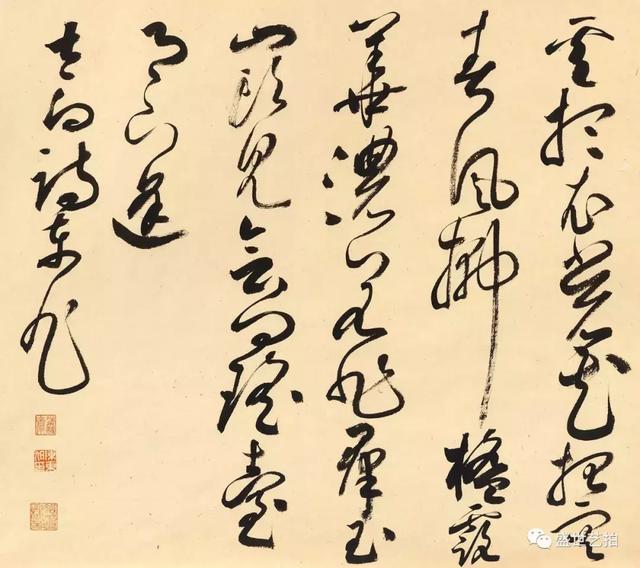 雲想衣裳花想容
春風拂檻露
華濃若非群玉
山頭見會向瑤臺
月下逢
太白詩東
盛世艺拍